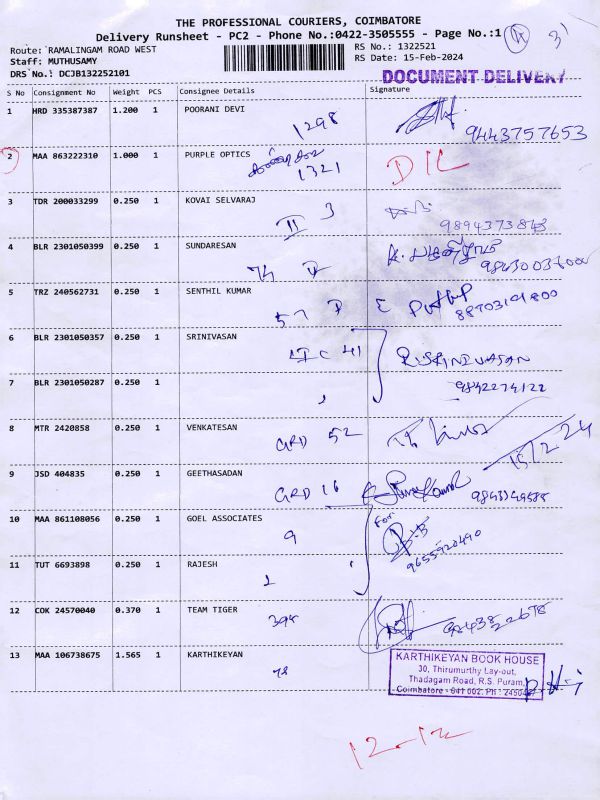 THE PROFESSIONAL COURIERS, COIMBATORE
Delivery Runsheet - PC2 - Phone No.:0422-3505555 - Page No.:1
Route: RAMALINGAM ROAD WEST
Staff: MUTHUSAMY
DRS No.: DCJB132252101
RS No.: 1322521
RS Date: 15-Feb-2024
DOCUMENT DELIVERY
S No Consignment No Weight PCS Consignee Details Signature
1 HRD 335387387 1.200 1 POORANI DEVI
1298
9443757653
2 MAA 863222310 1.000 1 PURPLE OPTICS
1321
D/L
3 TDR 200033299 0.250 1 KOVAI SELVARAJ
II 3
4 BLR 2301050399 0.250 1 SUNDARESAN
5 TRZ 240562731 0.250 1 SENTHIL KUMAR
6 BLR 2301050357 0.250 1 SRINIVASAN
41
R.SRINIVASAN
7 BLR 2301050287 0.250 1
9842274122
8 MTR 2420858 0.250 1 VENKATESAN
GRD 52
15/2.24
9 JSD 404835 0.250 1 GEETHASADAN
GRD 16
10 MAA 861108056 0.250 1 GOEL ASSOCIATES
9
For
9655920490
11 TUT 6693898 0.250 1 RAJESH
1
12 COK 24570040 0.370 1 TEAM TIGER
394
13 MAA 106738675 1.565 1 KARTHIKEYAN
78
KARTHIKEYAN BOOK HOUSE
30, Thirumurthy Lay-out,
Thadagam Road, R.S. Puram,
Coimbatore - 641 002. Ph :
12-12